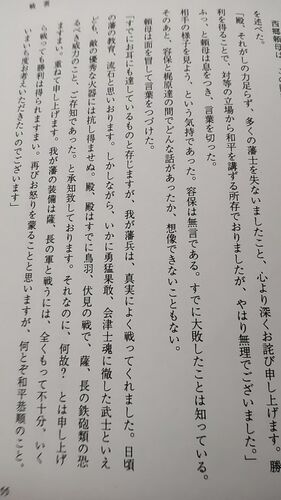 西郷頼母は
を述べた。
「殿、それがしの力足らず、多くの藩士を失ないましたこと、心より深くお詫び申し上げます。勝
利を得ることで、対等の立場から和平を講ずる所存でおりましたが、やはり無理でございました。」
ふっ、と頼母は息をつき、言葉を切った。
相手の様子を見よう、という気持であった。容保は無言である。すでに大敗したことは知っている。
そのあと、容保と梶原達の間でどんな話があったか、想像できないこともない。
頼母は面を冒して言葉をつづけた。
「すでにお耳にも達しているものと存じますが、我が藩兵は、真実によく戦ってくれました。日頃
の藩の教育、流石と思いおります。しかしながら、いかに勇猛果敢、会津士魂に徹した武士といえ
ども、敵の優秀な火器には抗し得ませぬ。殿、殿はすでに鳥羽、伏見の戦で、薩、長の鉄砲類の恐
るべき威力のこと、ご存知であった。と承知致しております。それなのに、何故？　とは申し上げ
ますまい。重ねて申し上げます。我が藩の装備は薩、長の軍と戦うには、全くもって不十分。いく
ら戦っても勝利は得られますまい。再びお怒りを蒙ることと思いますが、何とぞ和平恭順のこと。
いまいちどお考えいただきたいのでございます」